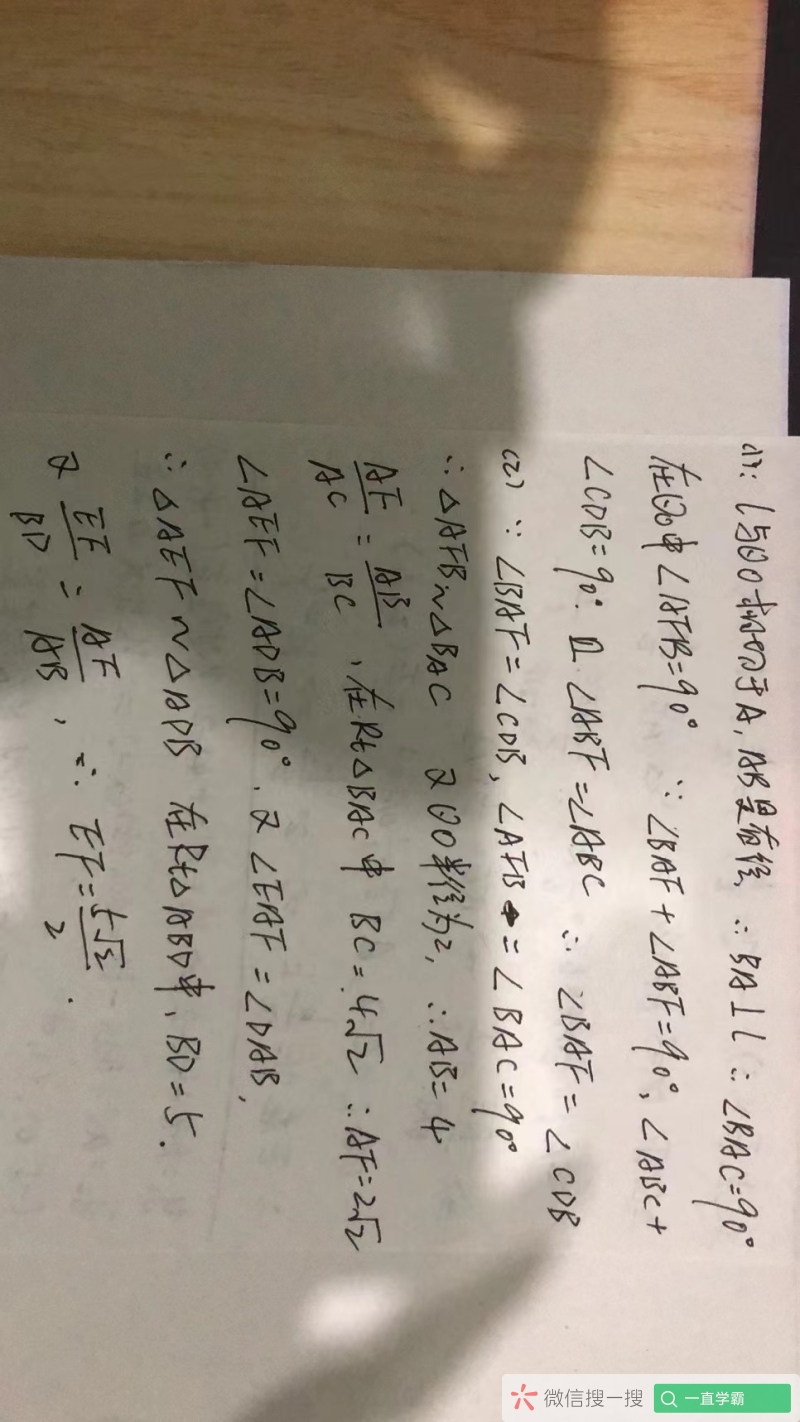 (1)∵ l与⊙O相切于A, AB是直径, ∴ BA⊥l ∴ ∠BAC=90°
在⊙O中∠AFB=90° ∵ ∠BAF+∠ABF=90°, ∠ABC+
∠CDB=90°. 且 ∠ABF=∠ABC ∴ ∠BAF=∠CDB
(2) ∵ ∠BAF=∠CDB, ∠AFB=∠BAC=90°
∴ △AFB∽△BAC 又⊙O半径为2, ∴AB=4
AF/AC = AB/BC, 在Rt△BAC中 BC=4√2 ∴AF=2√2
∠AEF=∠ADB=90°. 又∠EAF=∠DAB,
∴ △AEF∽△ADB 在Rt△ABD中, BD=5.
又 EF/BD = AF/AB, ∴ EF=5√2/2.
微信搜一搜
一直学霸